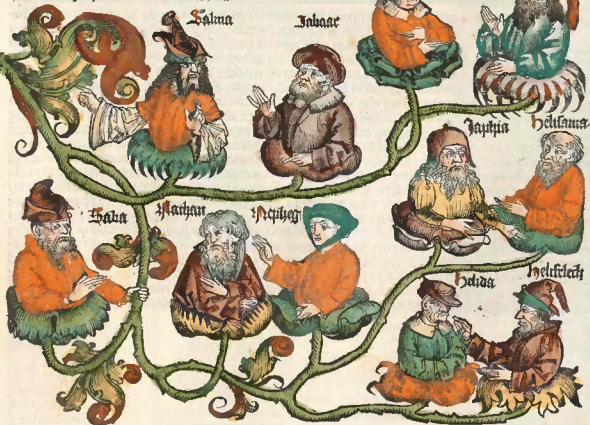 Salma
Jabaar
Japhia
Helisama
Saba
Nathan
Nepheg
Helida
Helifelech